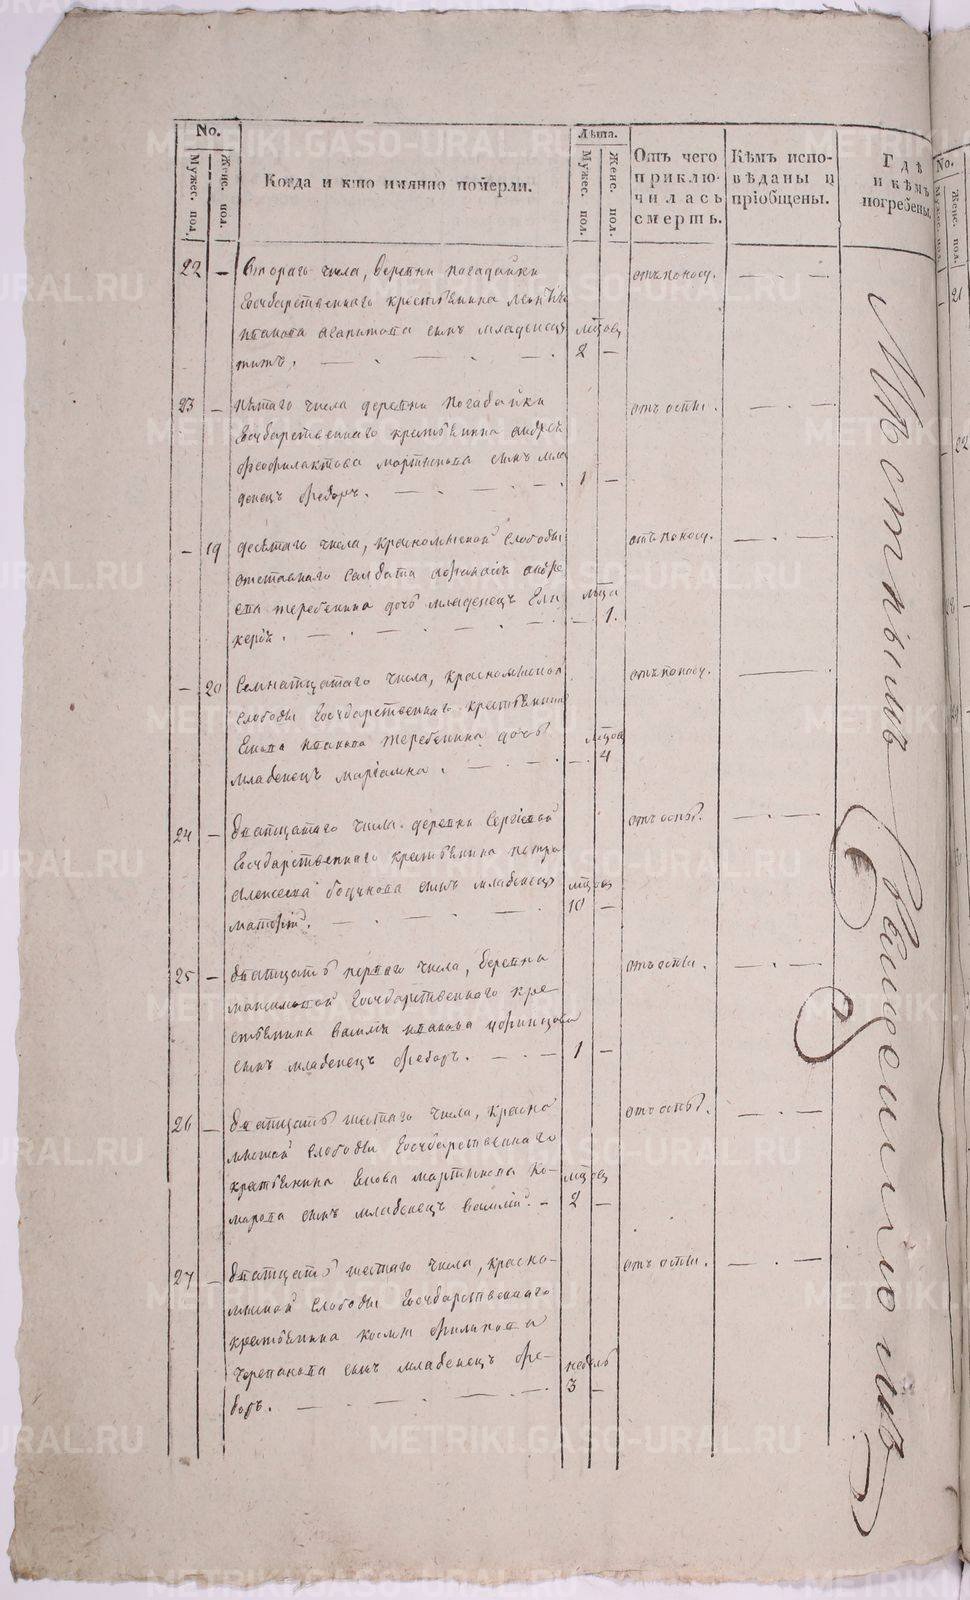 No.
Мужес. пол.
Женс. пол.
Когда и кто имянно померли.
Лѣта.
Мужес. пол.
Женс. пол.
Отъ чего
приклю-
чилась
смерть.
Кѣмъ испо-
вѣданы и
пріобщены.
Гдѣ
и кѣмъ
погребены.
22 — Втораго числа, деревни Погадайки
Государственнаго крестьянина
сынъ младенецъ
мцовъ
2 —
отъ поносу.
23 — пятаго числа деревни Погадайки
Государственнаго крестьянина Андрея
Феофилактова Мартюшова сынъ мла
денецъ Федоръ.
1 —
отъ оспы.
— 19 десятаго числа, Красномыской слободы
отставнаго солдата Афанасія Андре
ева Теребенина дочь младенецъ Гли
керія.
мѣсяца
— 1.
отъ поносу.
— 20 Семнатцатаго числа, Красномыской
слободы Государственнаго крестьянина
Иванова Теребенина дочь
младенецъ Маріамна.
мцовъ
— 4
отъ поносу.
24 — дватцатаго числа деревни
Государственнаго крестьянина Петра
Алексеева сынъ младенецъ
мцовъ
10 —
отъ оспы.
25 — дватцать перваго числа, деревни
Максимовой Государственнаго кре-
стьянина Василья Иванова
сынъ младенецъ Федоръ.
1 —
отъ оспы.
26 — дватцать шестаго числа, Красно
мыской слободы Государственнаго
крестьянина Мартюшова Ко-
марова сынъ младенецъ Василій.
мцовъ
2 —
отъ оспы.
27 — дватцать шестаго числа, Красно-
мыской слободы Государственнаго
крестьянина Космы Филипова
Черепанова сынъ младенецъ Фе-
доръ.
недель
3 —
отъ оспы.
Мѣстнымъ Священникомъ
No.
Мужес. пол.
Женс. пол.
21
22
METRIKI.GASO-URAL.RU